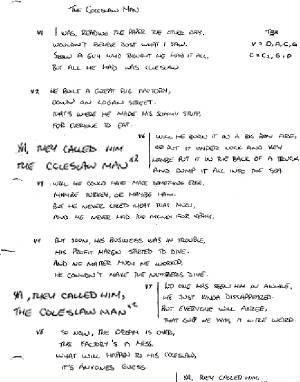 THE COLESLAW MAN
V1 I WAS READING THE PAPER THE OTHER DAY,
WOULDN'T BELIEVE JUST WHAT I SAW.
SEEN A GUY WHO THOUGHT HE HAD IT ALL,
BUT ALL HE HAD WAS COLESLAW
V = D, A, C, G
V2 HE BUILT A GREAT BIG FACTORY,
DOWN ON LOGAN STREET.
THAT'S WHERE HE MADE HIS STUFF
FOR EVERYONE TO EAT.
YA, THEY CALLED HIM
THE COLESLAW MAN x2
V6 WILL HE BURN IT IN A BIG BON FIRE,
OR PUT IT UNDER LOCK AND KEY
MAYBE PUT IT IN THE BACK OF A TRUCK
AND DUMP IT ALL INTO THE SEA
WELL HE COULD HAVE MADE SOMETHING ELSE,
MAYBE TURKEY, OR MAYBE HAM.
BUT HE NEVER LIKED MEAT THAT MUCH,
AND HE NEVER HAD THE MONEY FOR
BUT SOON, HIS BUSINESS WAS IN TROUBLE,
HIS PROFIT MARGIN STARTED TO DIVE.
AND NO MATTER HOW HE WORKED,
HE COULDN'T MAKE THE NUMBERS JIVE.
YA, THEY CALLED HIM,
THE COLESLAW MAN x2
V7 NO ONE HAS SEEN HIM IN AWHILE,
HE JUST KINDA DISSAPPEARED.
BUT EVERYONE WILL AGREE,
THAT GUY WAS A LITTLE WEIRD.
V5 SO NOW, THE DREAM IS OVER,
THE FACTORY'S A MESS.
WHAT WILL HAPPEN TO HIS COLESLAW,
IT'S ANYONES GUESS
YA, THEY CALLED HIM,